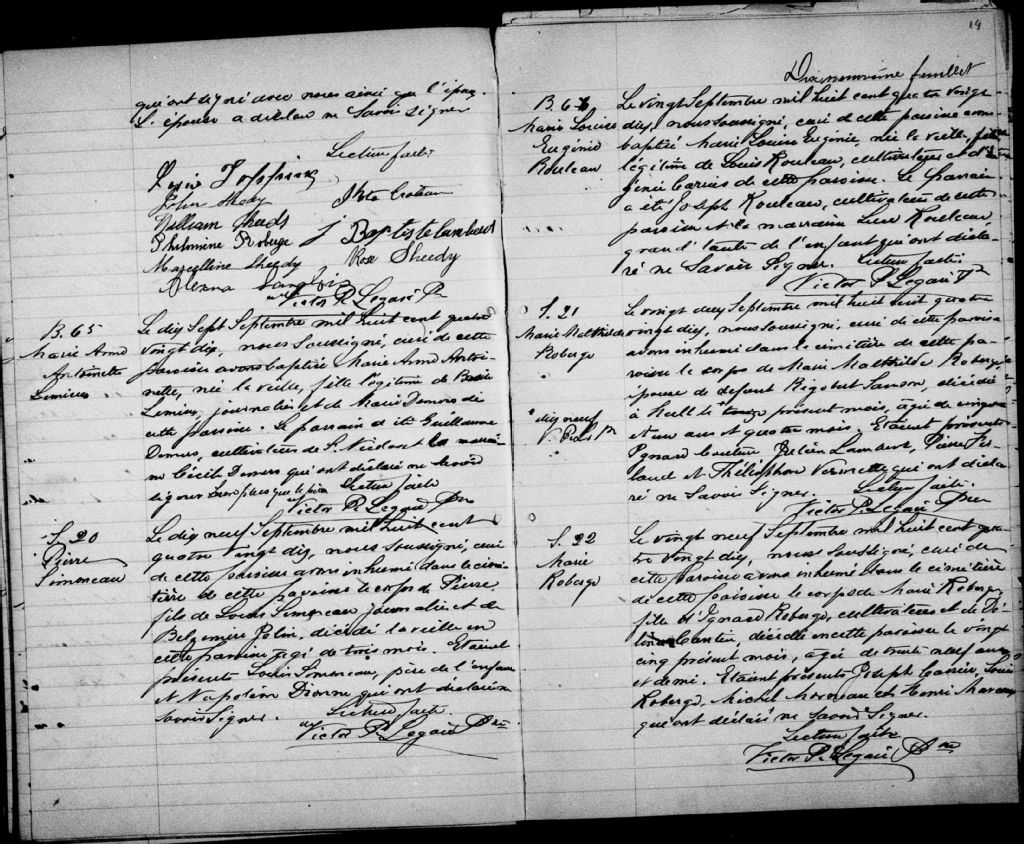 qui ont signé avec nous ainsi que l'époux.
L'épouse a déclaré ne savoir signer
Lecture faite
John Sheedy
William Sheedy
Philomine Roberge
J Baptiste Lambert
Marcelline Sheedy
Rose Sheedy
Victor P. Legaré Ptre
B. 65
Marie Anna
Antoinette
Lemieux
Le dix Sept Septembre mil huit cent quatre
vingt dix, nous soussigné, curé de cette
paroisse avons baptisé Marie Anna Antoi-
nette, née la veille, fille légitime de
Lemieux, journalier et de Marie Demers de
cette paroisse. Le parrain a été Guillaume
Demers, cultivateur de St Nicolas et la marrai-
ne Cécile Demers qui ont déclaré ne savoir
signer Lecture faite
Victor P. Legaré Ptre
S. 20
Pierre
Simoneau
Le dix neuf Septembre mil huit cent
quatre vingt dix, nous soussigné, curé
de cette paroisse avons inhumé dans le cime-
tière de cette paroisse le corps de Pierre,
fils de Louis Simoneau journalier et de
Belzemire Polin, décédé la veille en
cette paroisse agé de trois mois. Etaient
présents Louis Simoneau, père de l'enfant
et Napoléon Dionne qui ont déclaré ne
savoir signer. Lecture faite.
Victor P. Legaré Ptre
19
Dix neuvième feuillet
B. 66
Marie Louise
Eugénie
Rouleau
Le vingt Septembre mil huit cent quatre vingt
dix, nous soussigné, curé de cette paroisse avons
baptisé Marie Louise Eugénie, née la veille, fille
légitime de Louis Rouleau, cultivateur et d'
de cette paroisse. Le parrain
a été Joseph Rouleau, cultivateur de cette
paroisse et la marraine Rouleau
grand'tante de l'enfant qui ont décla-
ré ne savoir signer. Lecture faite
Victor P. Legaré Ptre
S. 21
Marie Mathilde
Roberge
dix neuf
V. P. L. Ptre
Le vingt deux Septembre mil huit cent quatre
vingt dix, nous soussigné, curé de cette paroisse
avons inhumé dans le cimetière de cette pa-
roisse le corps de Marie Mathilde Roberge,
épouse de défunt Rigobert Samson, décédée
à Hull le présent mois, agée de cinquante
et un ans et quatre mois. Etaient présents
Ignace Couture, Julien Lambert, Pierre
et Thélesphore qui ont décla-
ré ne savoir signer. Lecture faite.
Victor P. Legaré Ptre
S. 22
Marie
Roberge
Le vingt neuf Septembre mil huit cent qua-
tre vingt dix, nous soussigné, curé de
cette paroisse avons inhumé dans le cimetière
de cette paroisse le corps de Marie Roberge,
fille d'Ignace Roberge, cultivateur et de
Cantin, décédée en cette paroisse le vingt
cinq présent mois, agée de trente neuf ans
et demi. Etaient présents Joseph Louis
Roberge, Michel Morneau et Henri
qui ont déclaré ne savoir signer.
Lecture faite
Victor P. Legaré Ptre